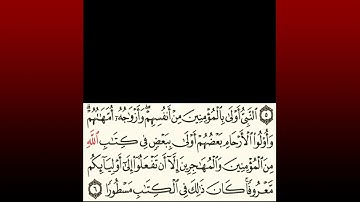 ٥ ٱلنَّبِيُّ أَوْلَىٰ بِٱلْمُؤْمِنِينَ مِنْ أَنفُسِهِمْۖ وَأَزْوَٰجُهُۥٓ أُمَّهَٰتُهُمْۗ
وَأُو۟لُوا۟ ٱلْأَرْحَامِ بَعْضُهُمْ أَوْلَىٰ بِبَعْضٍ فِى كِتَٰبِ ٱللَّهِ
مِنَ ٱلْمُؤْمِنِينَ وَٱلْمُهَٰجِرِينَ إِلَّآ أَن تَفْعَلُوٓا۟ إِلَىٰٓ أَوْلِيَآئِكُم
مَّعْرُوفًاۚ كَانَ ذَٰلِكَ فِى ٱلْكِتَٰبِ مَسْطُورًا ٦